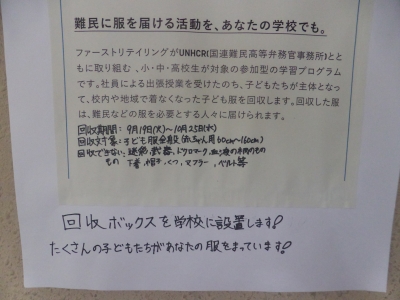 難民に服を届ける活動を、あなたの学校でも。
ファーストリテイリングがUNHCR(国連難民高等弁務官事務所)とと
もに取り組む、小・中・高校生が対象の参加型の学習プログラム
です。社員による出張授業を受けたのち、子どもたちが主体となっ
て、校内や地域で着なくなった子ども服を回収します。回収した服
は、難民などの服を必要とする人々に届けられます。
回収期間: 9月19日(火)~10月25日(水)
回収対象: 子ども服全般(赤ちゃん用60cm~160cm)
回収できない 迷彩、武器、ドクロマーク、
もの 下着、帽子、くつ、マフラー、ベルト等
回収ボックスを学校に設置します!
たくさんの子どもたちがあなたの服をまっています!